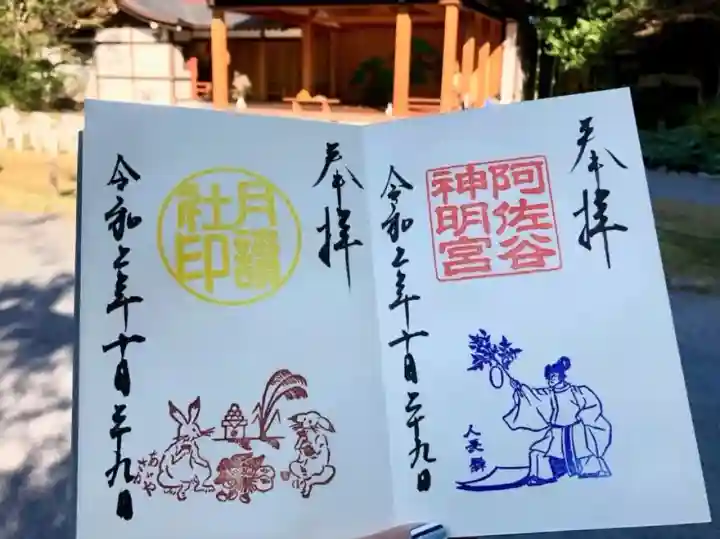 奉拝
阿佐谷
神明宮
令和二年十月二十九日
人長舞
奉拝
月讀
社印
令和二年十月二十九日
あさがや